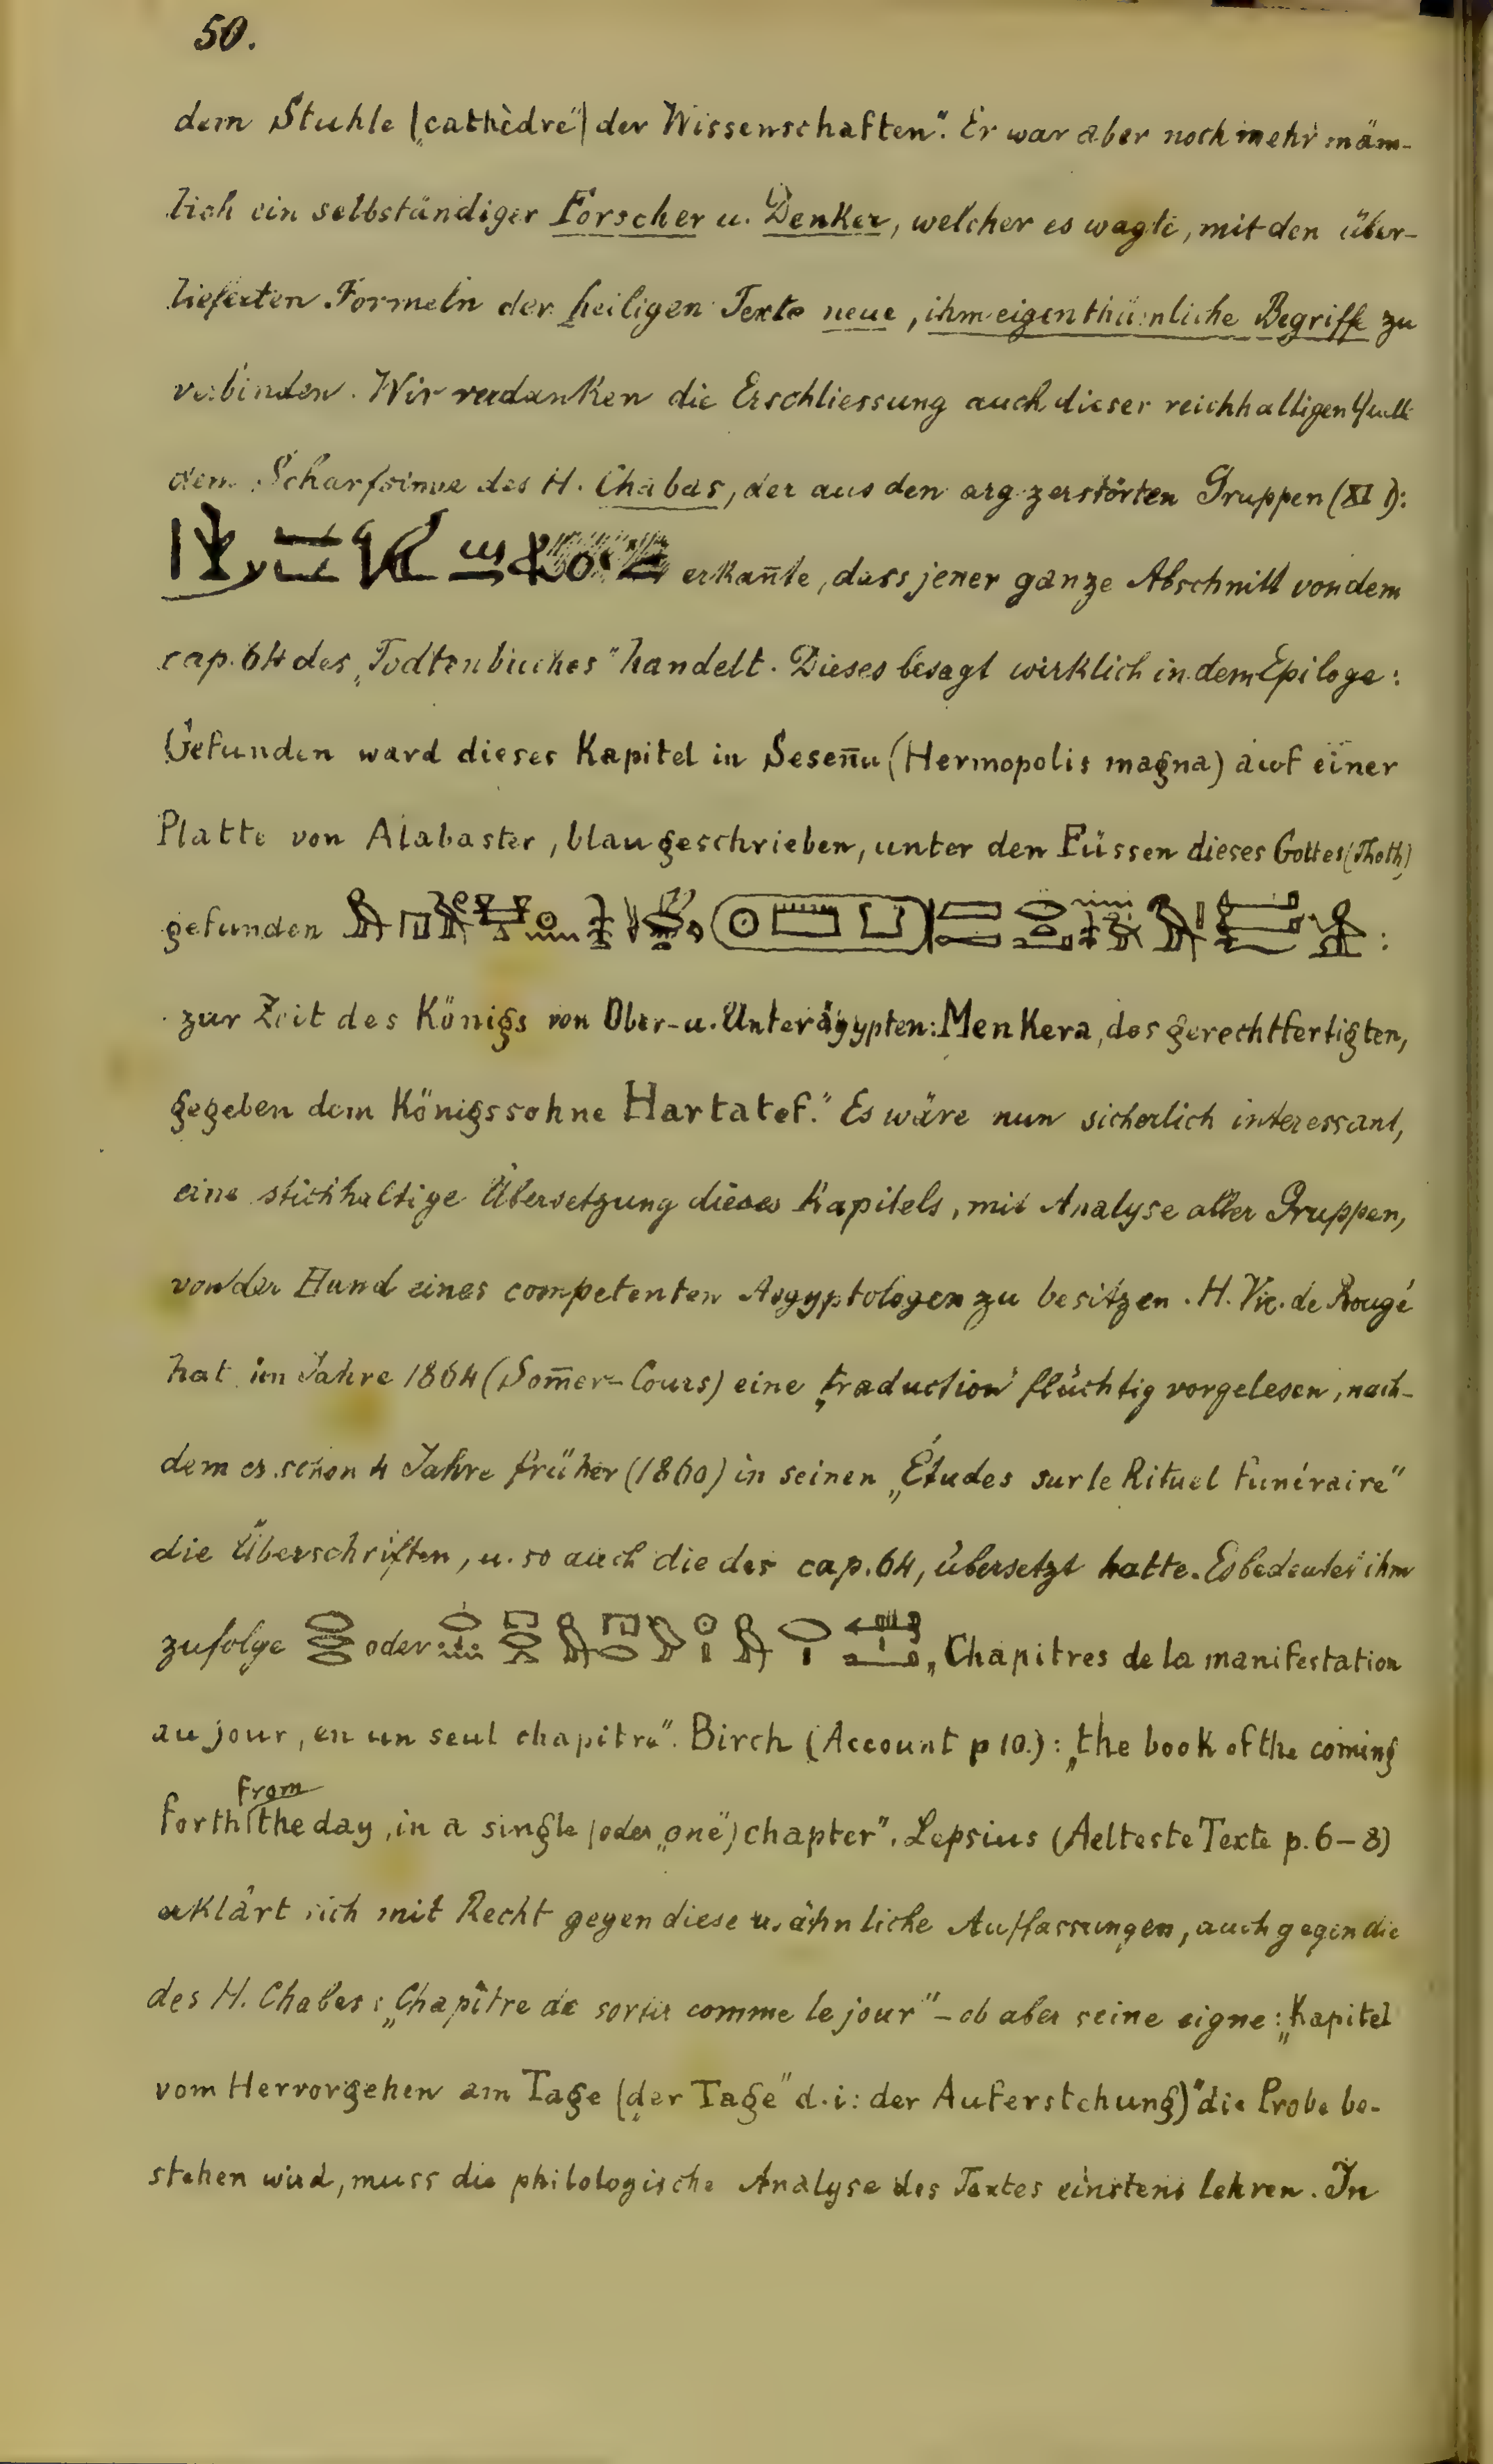 50.
dem Stuhle („cathèdre“) der Wissenschaften“. Er war aber noch mehr näm-
lich ein selbständiger Forscher u. Denker, welcher es wagte, mit den über-
lieferten Formeln der heiligen Texte neue, ihm eigenthümliche Begriffe zu
verbinden. Wir verdanken die Erschliessung auch dieser reichhaltigen Quelle
dem Scharfsinne des H. Chabas, der aus den arg zerstörten Gruppen (XI 1):
erkan̄te, dass jener ganze Abschnitt von dem
cap. 64 des „Todtenbuches“ handelt. Dieses besagt wirklich in dem Epiloge:
Gefunden ward dieses Kapitel in Sesen̄u (Hermopolis magna) auf einer
Platte von Alabaster, blau geschrieben, unter den Füssen dieses Gottes (Thoth)
gefunden :
zur Zeit des Königs von Ober- u. Unterägypten: Menkera, des gerechtfertigten,
gegeben dem Königssohne Hartatef.“ Es wäre nun sicherlich interessant,
eine stichhaltige Übersetzung dieses Kapitels, mit Analyse aller Gruppen,
von der Hand eines competenten Aegyptologen zu besitzen. H. Vic. de Rougé
hat im Jahre 1864 (Som̄er-Cours) eine „traduction“ flüchtig vorgelesen, nach-
dem er schon 4 Jahre früher (1860) in seinen „Études sur le Rituel funéraire“
die Überschriften, u. so auch die des cap. 64, übersetzt hatte. Es bedeutet ihm
zufolge oder „Chapitres de la manifestation
au jour, en un seul chapitre“. Birch (Account p 10.): „the book of the coming
forth from the day, in a single (oder „one“) chapter“. Lepsius (Aelteste Texte p. 6–8)
erklärt sich mit Recht gegen diese u. ähnliche Auffassungen, auch gegen die
des H. Chabas: „Chapître de sortir comme le jour“ – ob aber seine eigne: „Kapitel
vom Hervorgehen am Tage („der Tage“ d. i: der Auferstehung)“ die Probe be-
stehen wird, muss die philologische Analyse des Textes einstens lehren. In